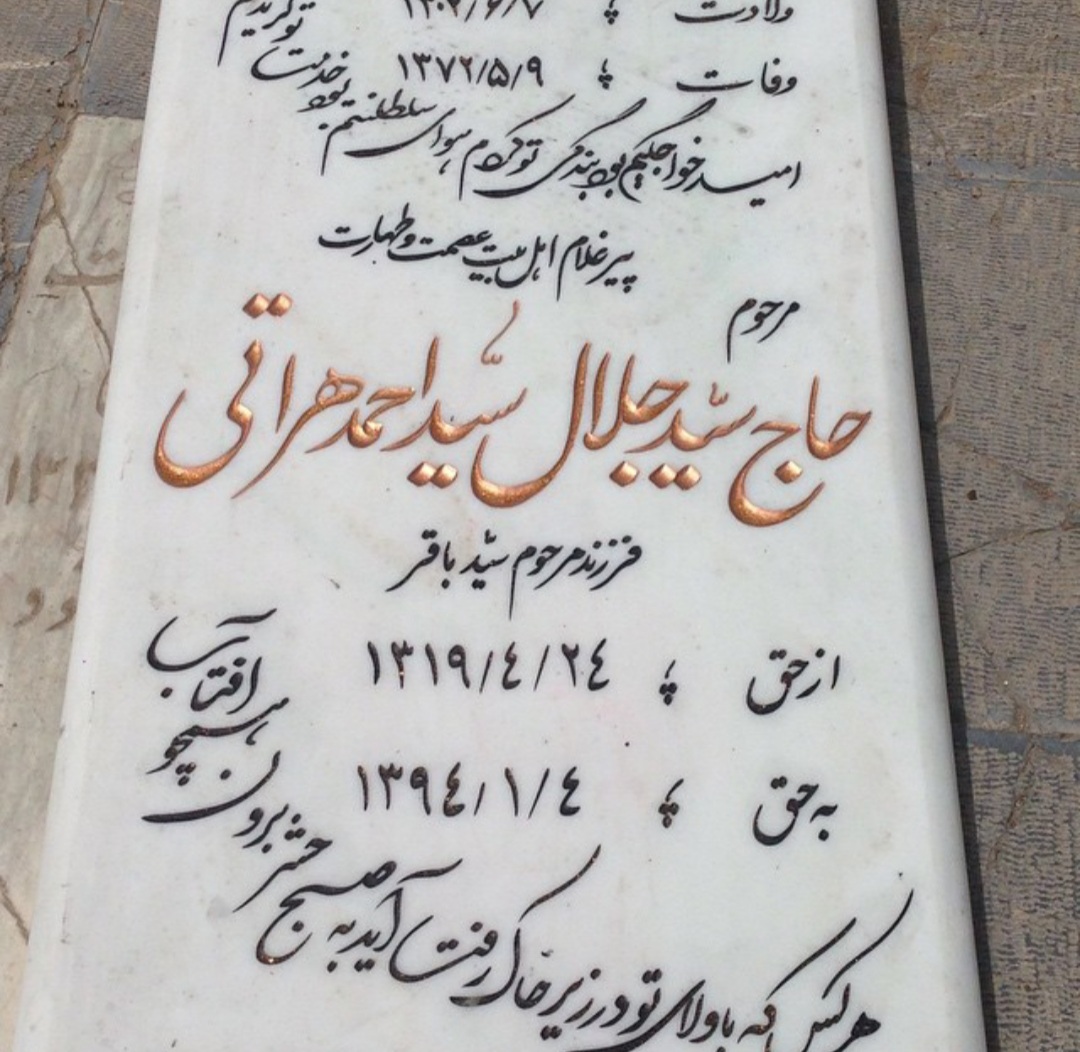 ولادت ؛
وفات ؛ ۱۳۷۲/۵/۹
امید خواجگیم بود بندگی تو کردم هوای سلطنتم بود خدمت تو گزیدم
پیر غلام اهل بیت عصمت و طهارت
مرحوم
حاج سیّد جلال سیّد احمد هراتی
فرزند مرحوم سیّد باقر
از حق ؛ ۱۳۱۹/٤/۲٤
به حق ؛ ۱۳۹٤/۱/٤
هر کس که با ولای تو در زیر خاک رفت آید به صبح حشر برون همچو افتاب